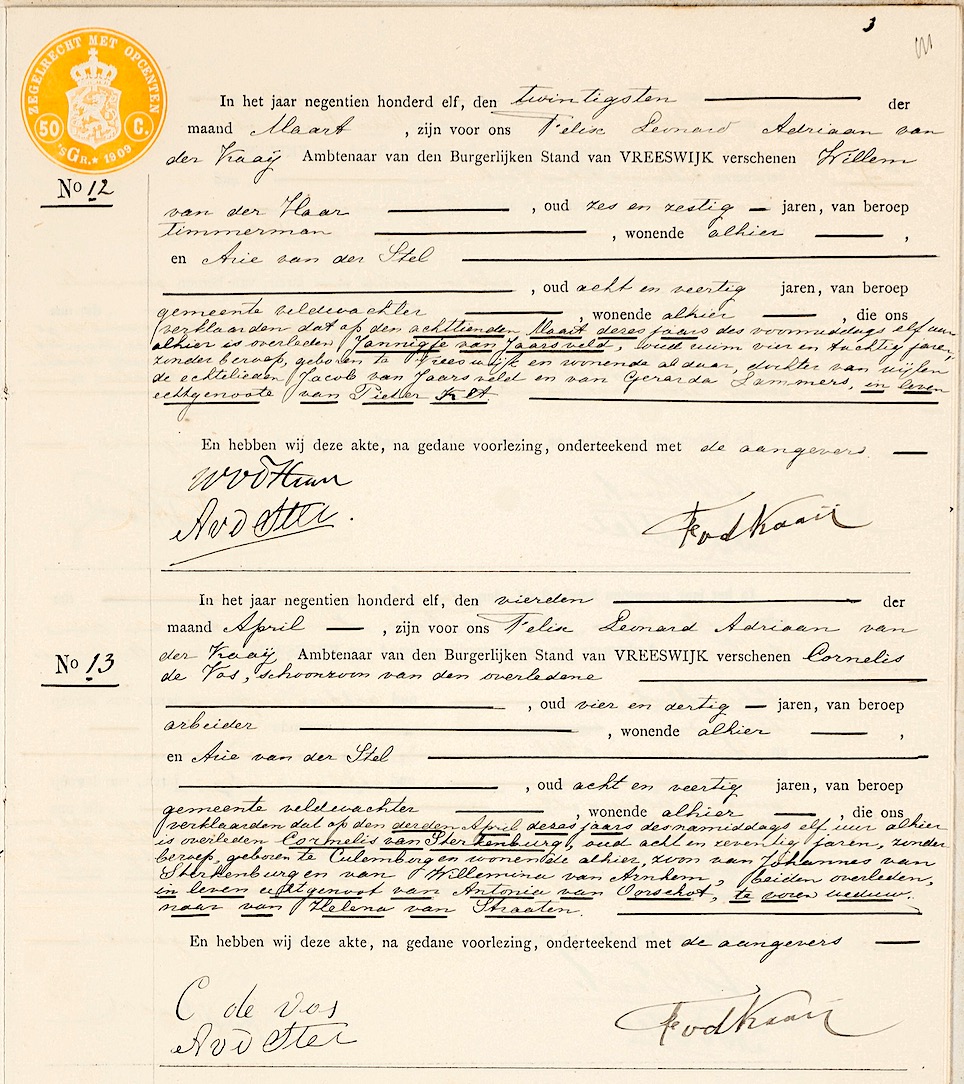 3
ZEGELRECHT MET OPCENTEN
50 C.
'sGR. * 1909
In het jaar negentien honderd elf, den twintigsten der
maand Maart , zijn voor ons Felix Leonard Adriaan van
der Kaaÿ Ambtenaar van den Burgerlijken Stand van VREESWIJK verschenen Willem
No 12
van der Haar , oud zes en zestig jaren, van beroep
timmerman , wonende alhier ,
en Arie van der Stel
, oud acht en veertig jaren, van beroep
gemeente veldwachter , wonende alhier , die ons
verklaarden dat op den achttienden Maart dezes jaars des voormiddags elf uur
alhier is overleden Jannigje van Jaarsveld, oud ruim vier en tachtig jaren,
zonder beroep, geboren te Vreeswijk en wonende aldaar, dochter van wijlen
de echtelieden Jacob van Jaarsveld en van Gerarda Lammers, in leven
echtgenoote van Pieter
En hebben wij deze akte, na gedane voorlezing, onderteekend met de aangevers.
WvdHaar
AvdStel.
FvdKaaij
In het jaar negentien honderd elf, den vierden der
maand April , zijn voor ons Felix Leonard Adriaan van
der Kaaÿ Ambtenaar van den Burgerlijken Stand van VREESWIJK verschenen Cornelis
No 13
de Vos, schoonzoon van den overledene
, oud vier en dertig jaren, van beroep
arbeider , wonende alhier ,
en Arie van der Stel
, oud acht en veertig jaren, van beroep
gemeente veldwachter , wonende alhier , die ons
verklaarden dat op den derden April dezes jaars desnamiddags elf uur alhier
is overleden Cornelis van Sterkenburg, oud acht en zeventig jaren, zonder
beroep, geboren te Culemborg en wonende alhier, zoon van Johannes van
Sterkenburg en van Willemina van Arnhem, beiden overleden,
in leven echtgenoot van Antonia van Oorschot, te voren weduw-
naar van Helena van Straaten.
En hebben wij deze akte, na gedane voorlezing, onderteekend met de aangevers
C de Vos
AvdStel
FvdKaaij